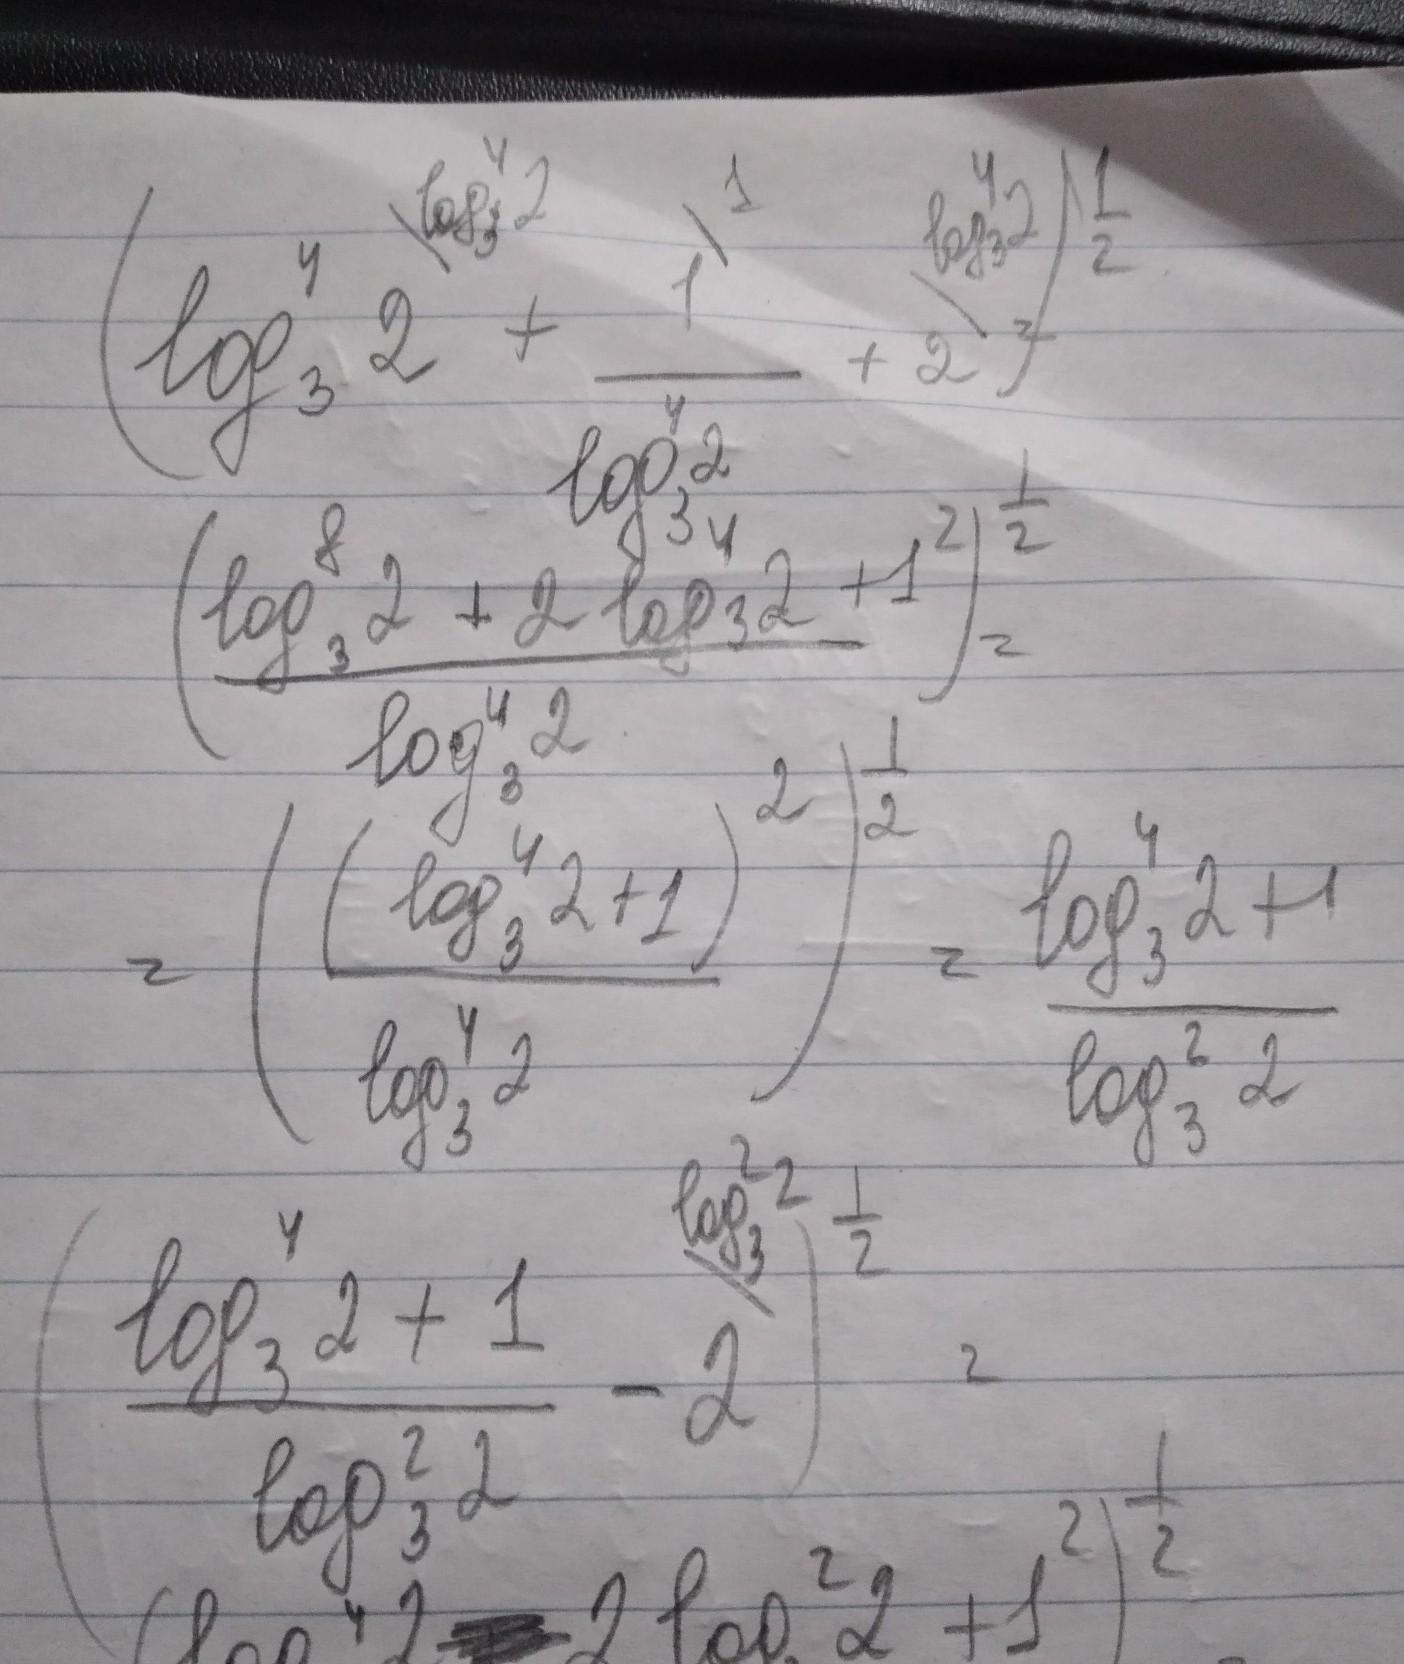 (log₃⁴ 2 \log₃⁴ 2 + 1 \1 / log₃⁴ 2 + 2 \log₃⁴ 2)^(1/2) =
((log₃⁸ 2 + 2 log₃⁴ 2 + 1²) / log₃⁴ 2)^(1/2) =
= ((log₃⁴ 2 + 1)² / log₃⁴ 2)^(1/2) = (log₃⁴ 2 + 1) / log₃² 2
((log₃⁴ 2 + 1) / log₃² 2 - 2 \log₃² 2)^(1/2) =
(log⁴ 2 - 2 log² 2 + 1²)^(1/2)